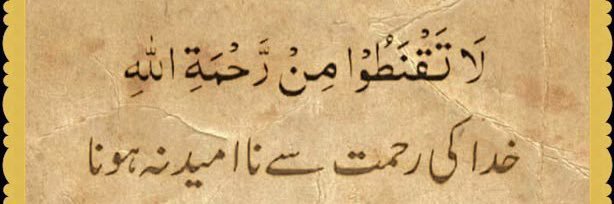 لَا تَقْنَطُوْا مِنْ رَّحْمَةِ اللّٰهِ
خدا کی رحمت سے نا امید نہ ہونا